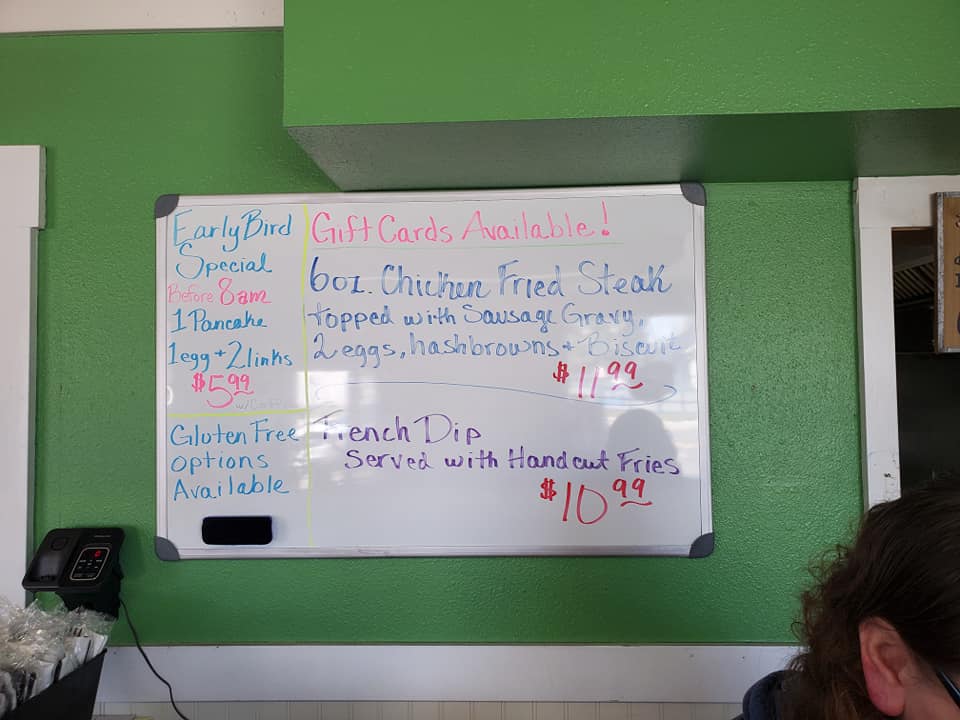 Early Bird
Special
Before 8am
1 Pancake
1 egg + 2 links
$5.99
Gluten Free
options
Available
Gift Cards Available!
6oz. Chicken Fried Steak
topped with Sausage Gravy,
2 eggs, hashbrowns + Biscuit
$11.99
French Dip
Served with Handcut Fries
$10.99